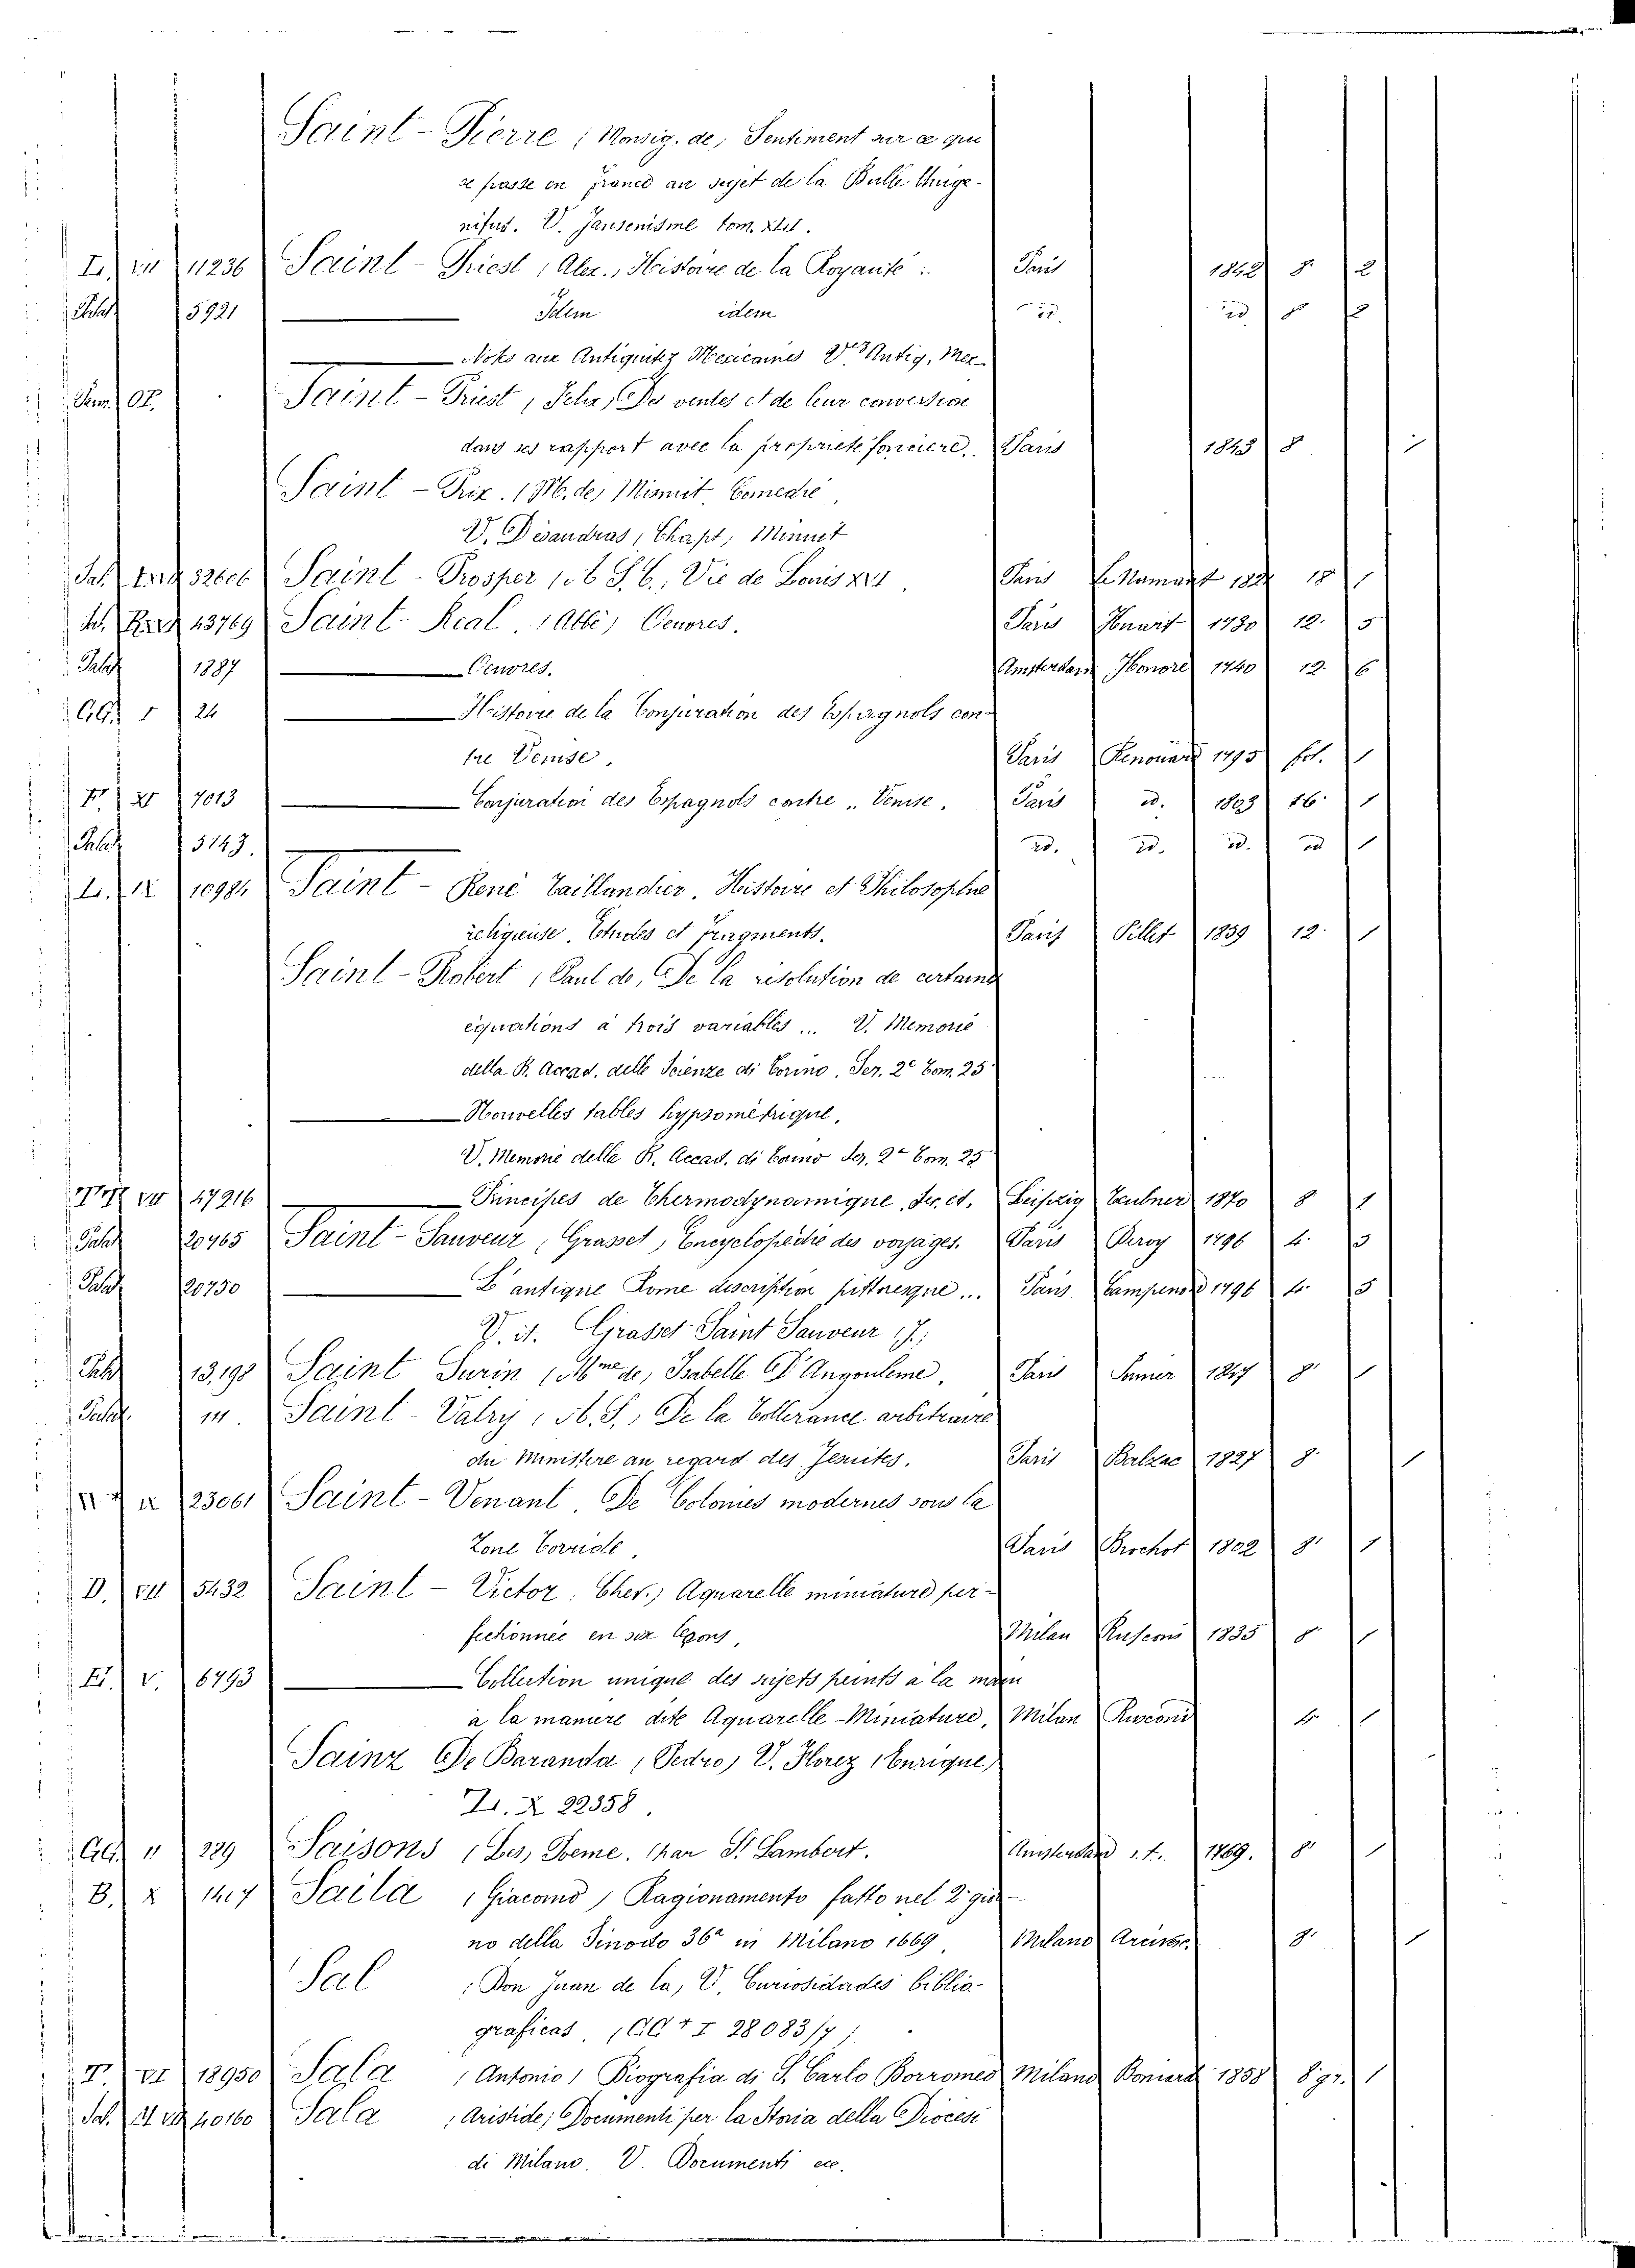 Saint-Pierre (Monsig. de) Sentiment sur ce que
se passe en france au sujet de la Bulle Unige-
nitus. V. Jansenisme tom.
11236 Saint-Priest (Alex.) Histoire de la Royauté: Paris 1842 8. 2
5921 Idem idem id. id. 8 2
Nots aux Antiquités Mexicaines V. Antiq. Mex
Saint-Priest, Felix, Des ventes et de leur conversion
dans ses rapport avec la propriete fonciere. Paris 1843 8 1
Saint-Prix. (M. de) Minuit Comedie,
V. Désandras (Chapt) Minuit
32606 Saint-Prosper (A. S. C.) Vie de Louis XVI. Paris 18 1
43769 Saint-Real (Abbé) Oeuvres. Paris 1780 12. 5
1887 Oeuvres. Amsterdam Honoré 1740 12. 6
GG 1 24 Histoire de la Conjuration des Espagnols con-
tre Venise. Paris Renouard 1795 fol. 1
7013 Conjuration des Espagnols contre Venise. Paris id. 1803 16 1
5143. id. id. id. id 1
Saint-René Taillandier. Histoire et Philosophie
religieuse. Etudes et fragments. Paris 1839 12. 1
Saint-Robert (Paul de) De la résolution de certaines
equations à trois variables... V. Memorie
della R. Accad. delle Scienze di Torino. Ser. 2e Tom. 25
Nouvelles tables hypsométrique.
V. Memorie della R. Accad. di Torino Ser. 2a Tom. 25
47216 Principes de Thermodynamique. Leipzig Teubner 1870 8 1
20465 Saint-Sauveur (Grasset) Encyclopédie des voyages. Paris Deroy 1796 4. 5
20750 L'antique Rome description pittoresque... Paris 1796 4. 5
V. it. Grasset Saint Sauveur (J.)
13,198 Saint Surin (Mme de) Isabelle D'Angouleme. Paris 1847 8 1
111. Saint-Valry (A. S.) De la Tollerance arbitraire
du Ministere au regard des Jesuites. Paris Balzac 1827 8. 1
23061 Saint-Venant. De Colonies modernes sous la
Zone Torride. Paris Brochot 1802 8. 1
D. VII 5432 Saint-Victor (Cher.) Aquarelle miniature per-
fectionnée en six leçons, Milan Rusconi 1835 8 1
V. 6793 Collection unique des sujets peints a la main
à la maniere dite Aquarelle-Miniature, Milan Rusconi 4. 1
Sainz De Baranda (Pedro) V. Florez (Enrique)
X 22358.
GG 11 229 Saisons (Les) Poeme. (par St Lambert. Amsterdam s. t. 1769. 8. 1
B. X 1407 Saila (Giacomo) Ragionamento fatto nel 2. gior-
no della Sinodo 36a in Milano 1669, Milano 8. 1
Sal (Don Juan de la) V. Curiosidades biblio-
graficas (GG + I 28083/7)
VI 18950 Sala (Antonio) Biografia di S. Carlo Borromeo Milano Boniardi 1858 8 gr. 1
40160 Sala (Aristide) Documenti per la Storia della Diocesi
di Milano. V. Documenti ec.